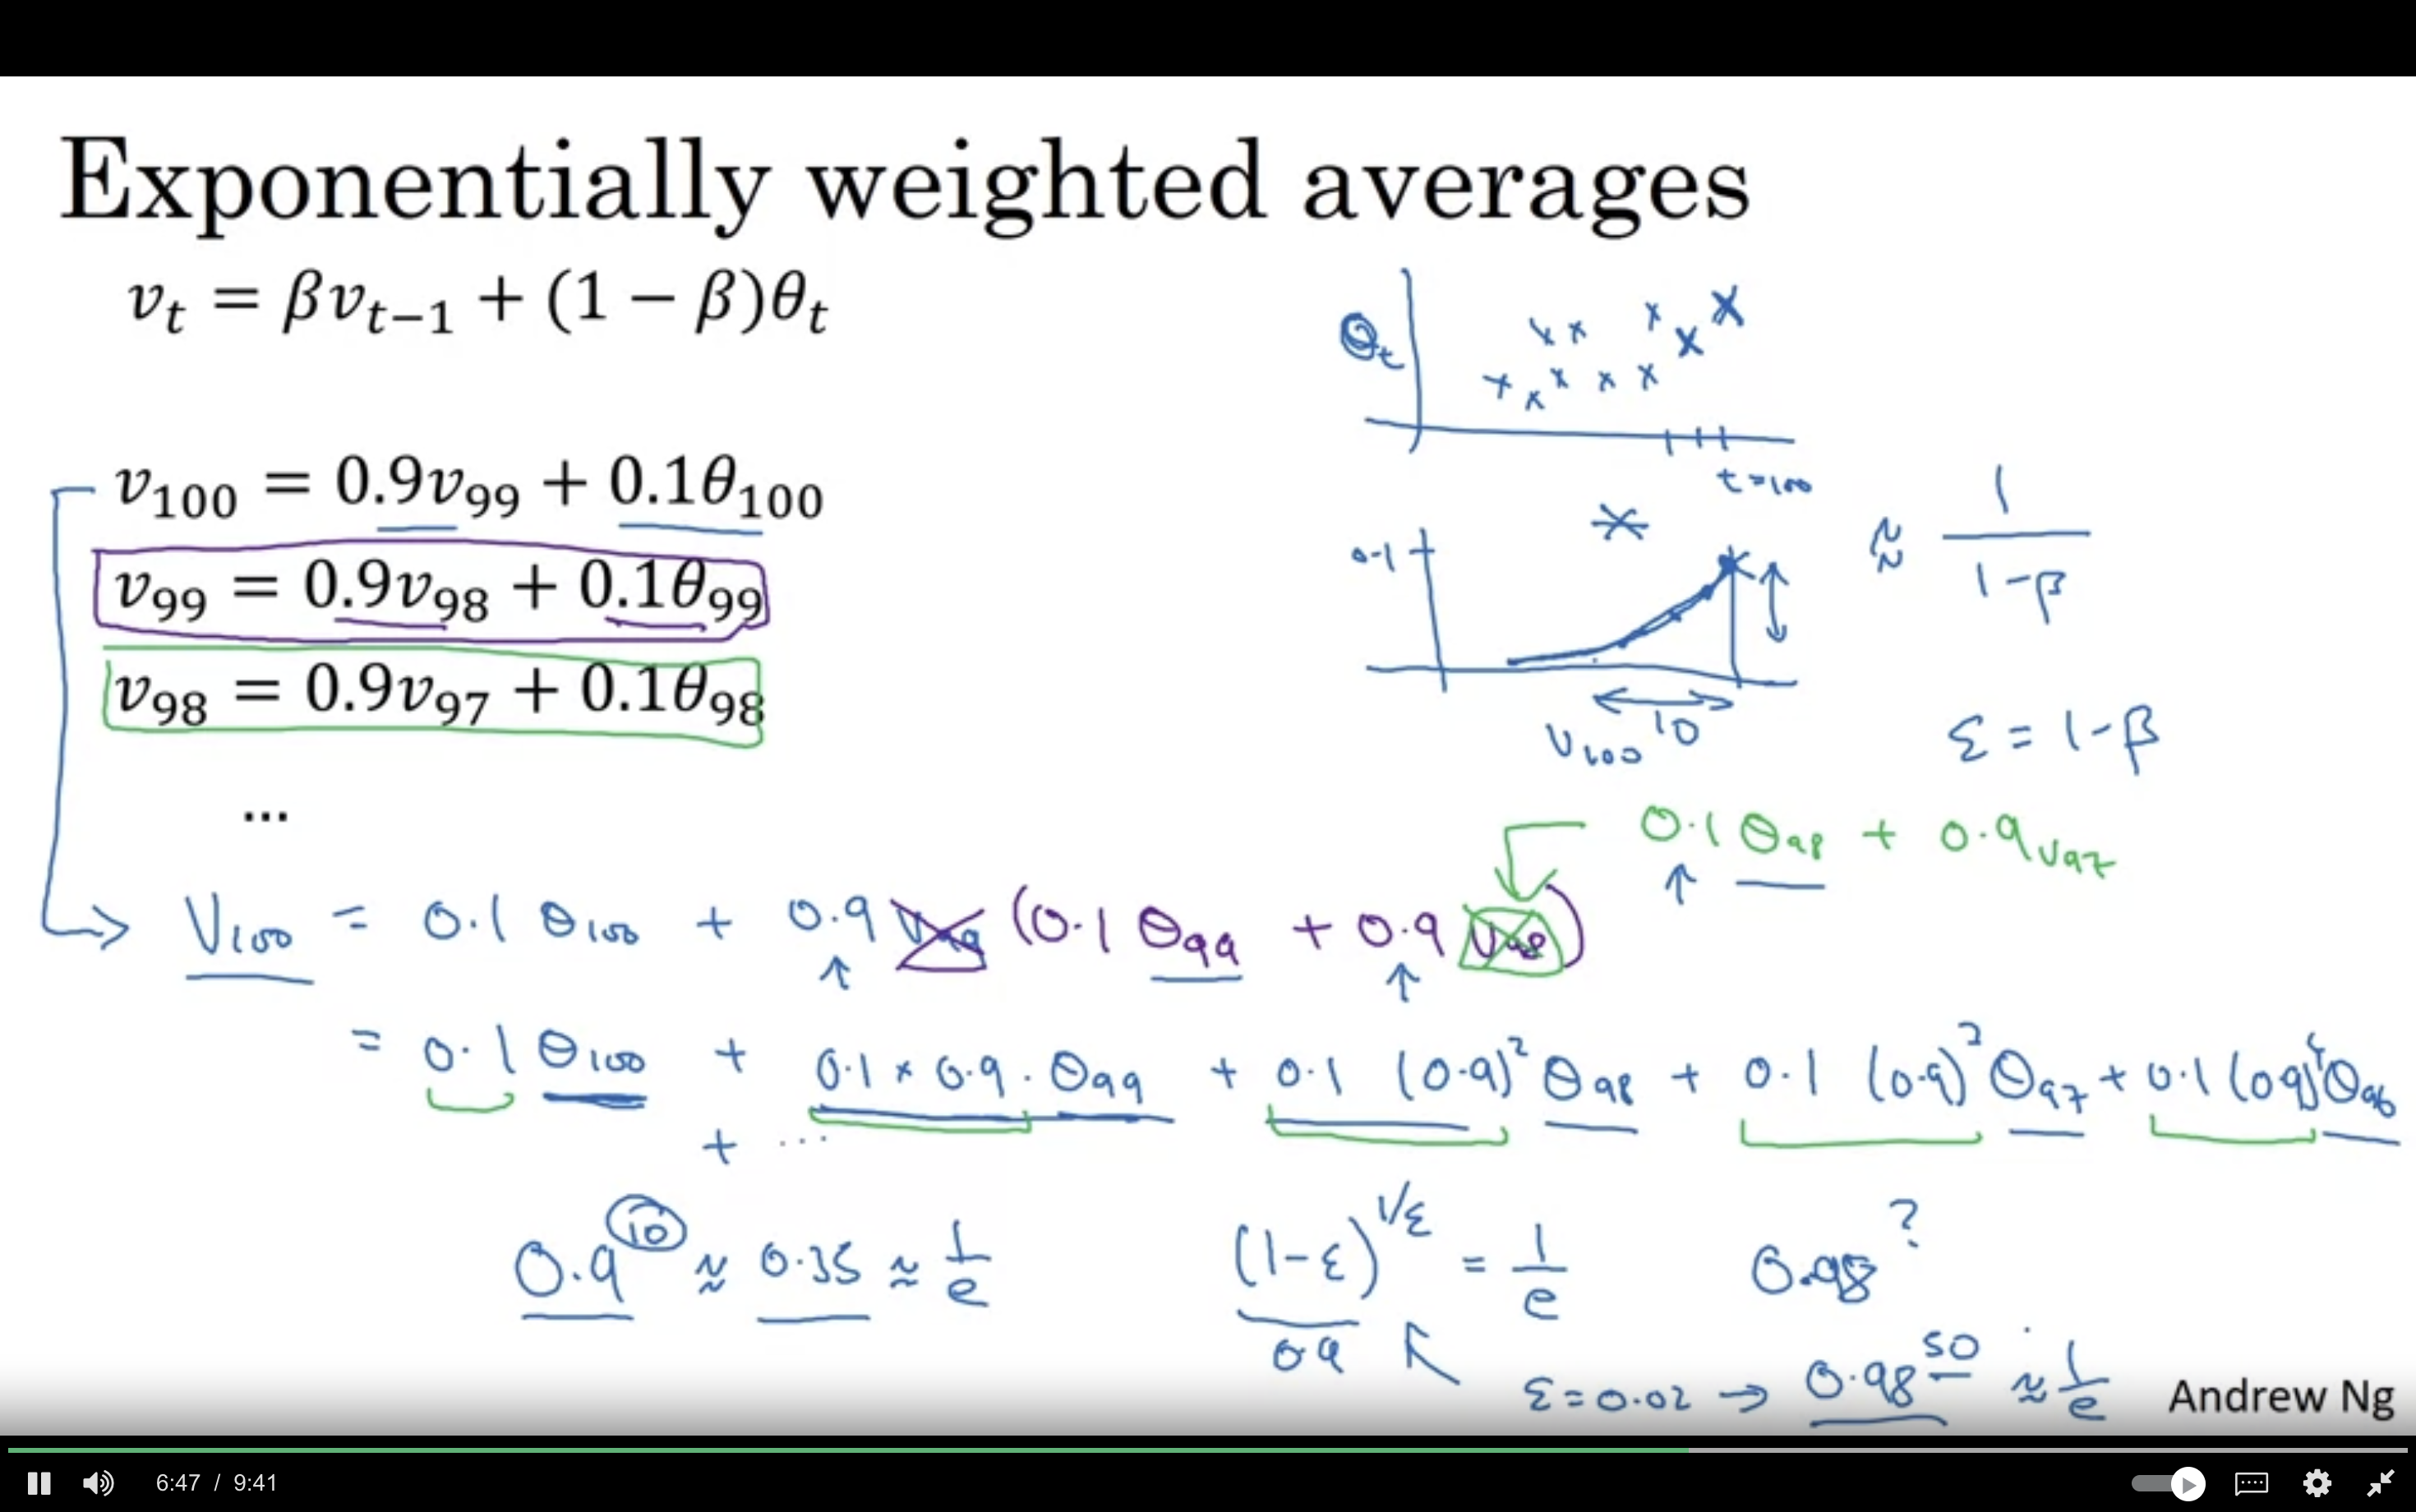 Exponentially weighted averages
vₜ = βvₜ₋₁ + (1 − β)θₜ
θₜ
t=100
v₁₀₀ = 0.9v₉₉ + 0.1θ₁₀₀
v₉₉ = 0.9v₉₈ + 0.1θ₉₉
v₉₈ = 0.9v₉₇ + 0.1θ₉₈
...
0.1
10
V₁₀₀
≈ 1/(1-β)
ε = 1-β
0.1 θ₉₈ + 0.9 V₉₇
V₁₀₀ = 0.1 θ₁₀₀ + 0.9 V₉₉ (0.1 θ₉₉ + 0.9 V₉₈)
= 0.1 θ₁₀₀ + 0.1 × 0.9 · θ₉₉ + 0.1 (0.9)² θ₉₈ + 0.1 (0.9)³ θ₉₇ + 0.1 (0.9)⁴ θ₉₆
+ ...
0.9¹⁰ ≈ 0.35 ≈ 1/e
(1-ε)^(1/ε) = 1/e
0.9
0.98^?
ε = 0.02 → 0.98⁵⁰ ≈ 1/e
Andrew Ng
6:47 / 9:41